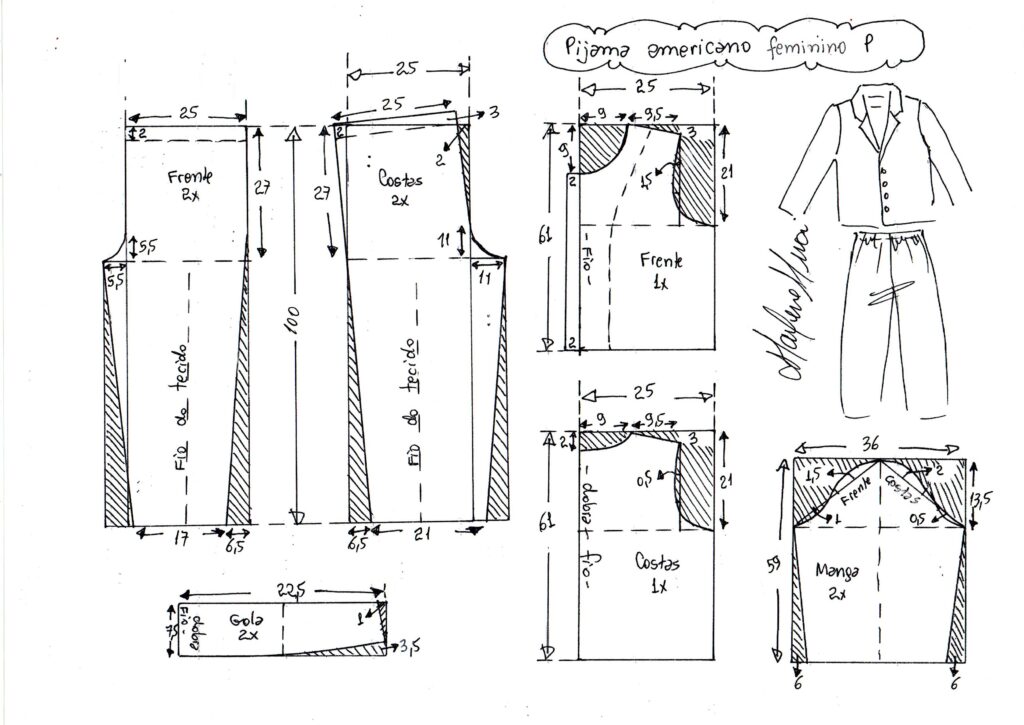 Pijama americano feminino P
25
2
Frente
2x
27
5,5
5,5
Fio do tecido
17
6,5
100
25
25
3
2
2
Costas
2x
27
11
11
Fio do tecido
6,5
21
22,5
7,5
Fio -
dobra
Gola
2x
1
3,5
25
9
9,5
3
9
2
1,5
21
61
- Fio -
Frente
1x
2
25
9
9,5
3
2
0,5
21
61
- dobra + fio -
Costas
1x
36
1,5
2
Frente
Costas
1
0,5
13,5
59
Manga
2x
6
6